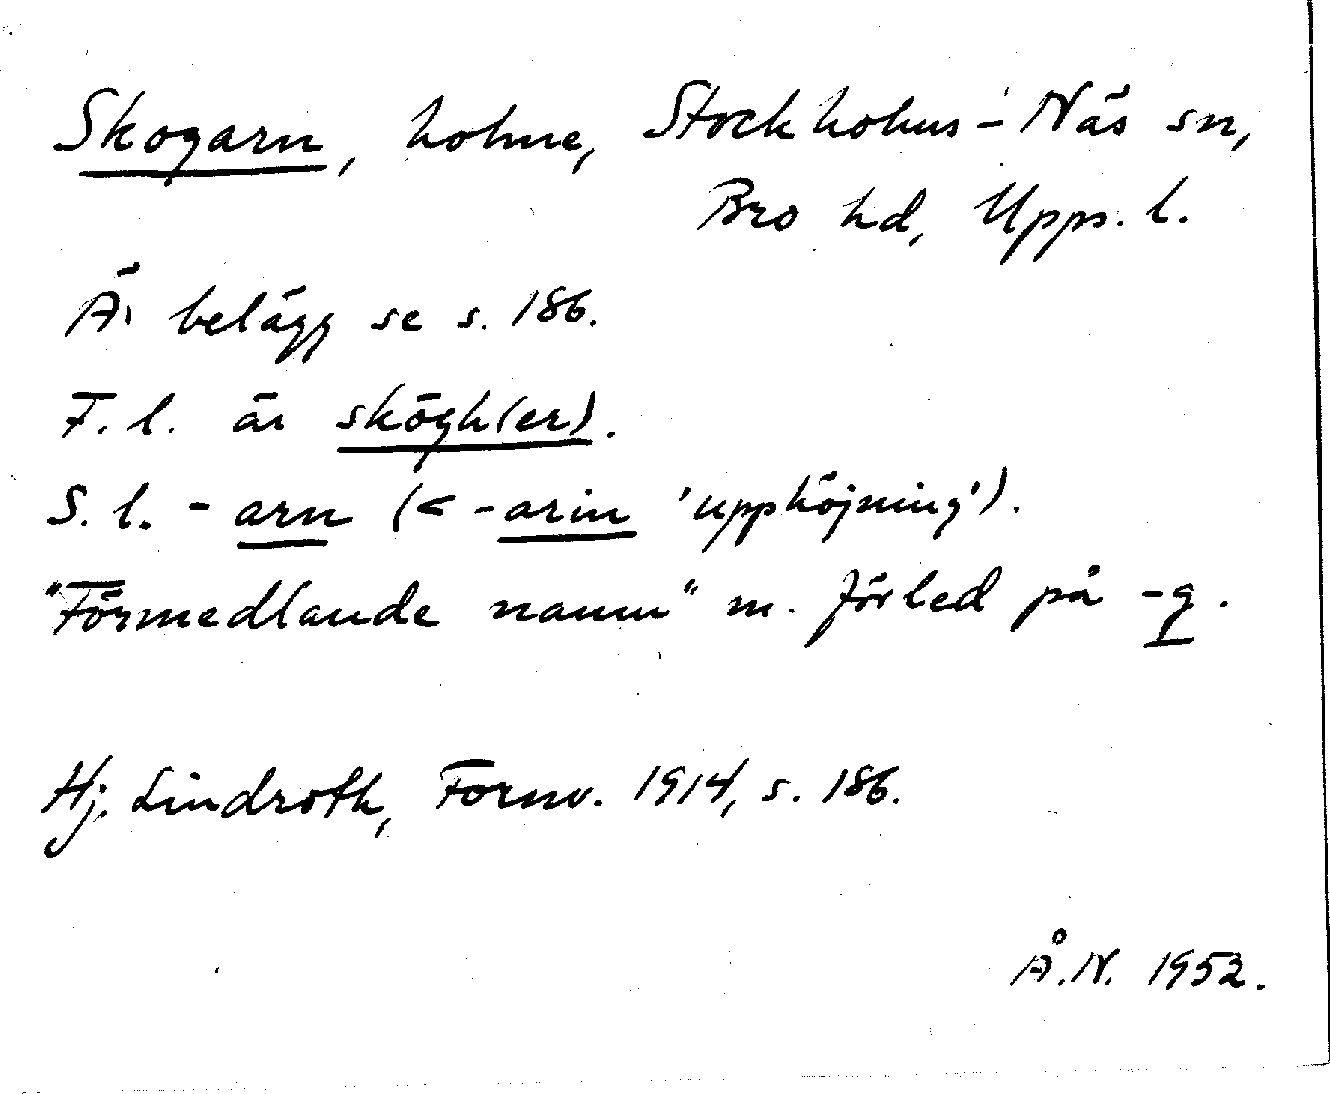 Skogarn, holme, Stockholms-Näs sn,
Bro hd, Upps. l.
Ä. belägg se s. 186.
F. l. är skögh(er).
S. l. -arn (< -arin 'upphöjning').
"Förmedlande namn" m. förled på -g.
Hj. Lindroth, Fornv. 1914, s. 186.
Å.N. 1952.